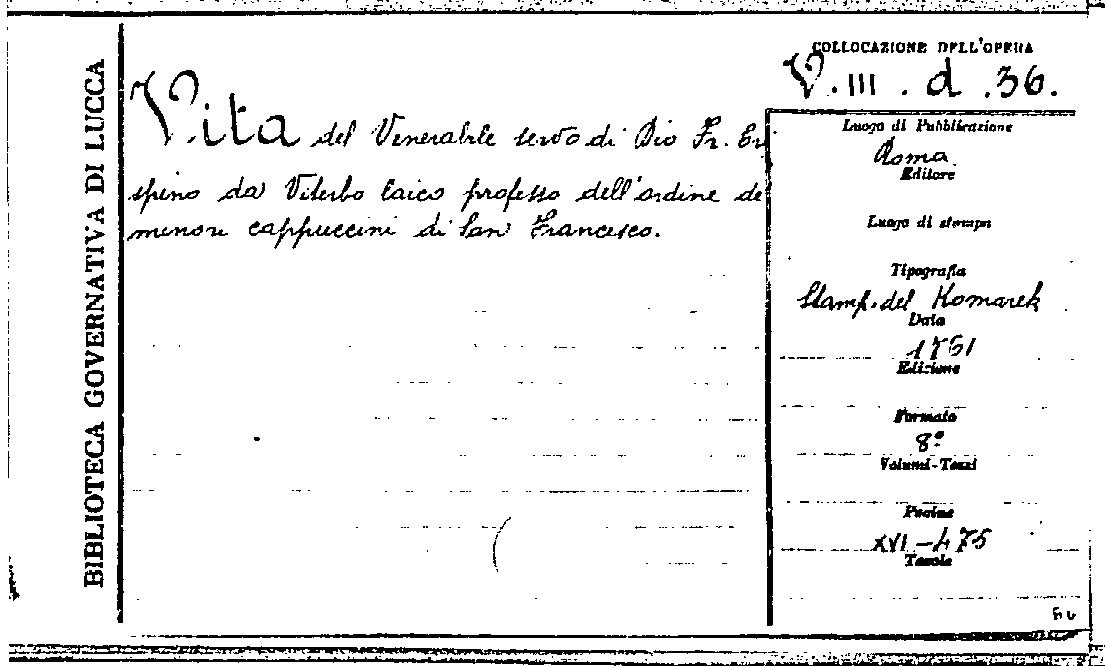 BIBLIOTECA GOVERNATIVA DI LUCCA
Vita del Venerabile servo di Dio Fr. Cri
spino da Viterbo laico professo dell'ordine de
minori cappuccini di San Francesco.
COLLOCAZIONE DELL'OPERA
V. III. d. 36.
Luogo di Pubblicazione
Roma
Editore
Luogo di stampa
Tipografia
Stamp. del Komarek
Data
1761
Edizione
Formato
8°
Volumi-Tomi
Pagine
XVI-475
Tavole